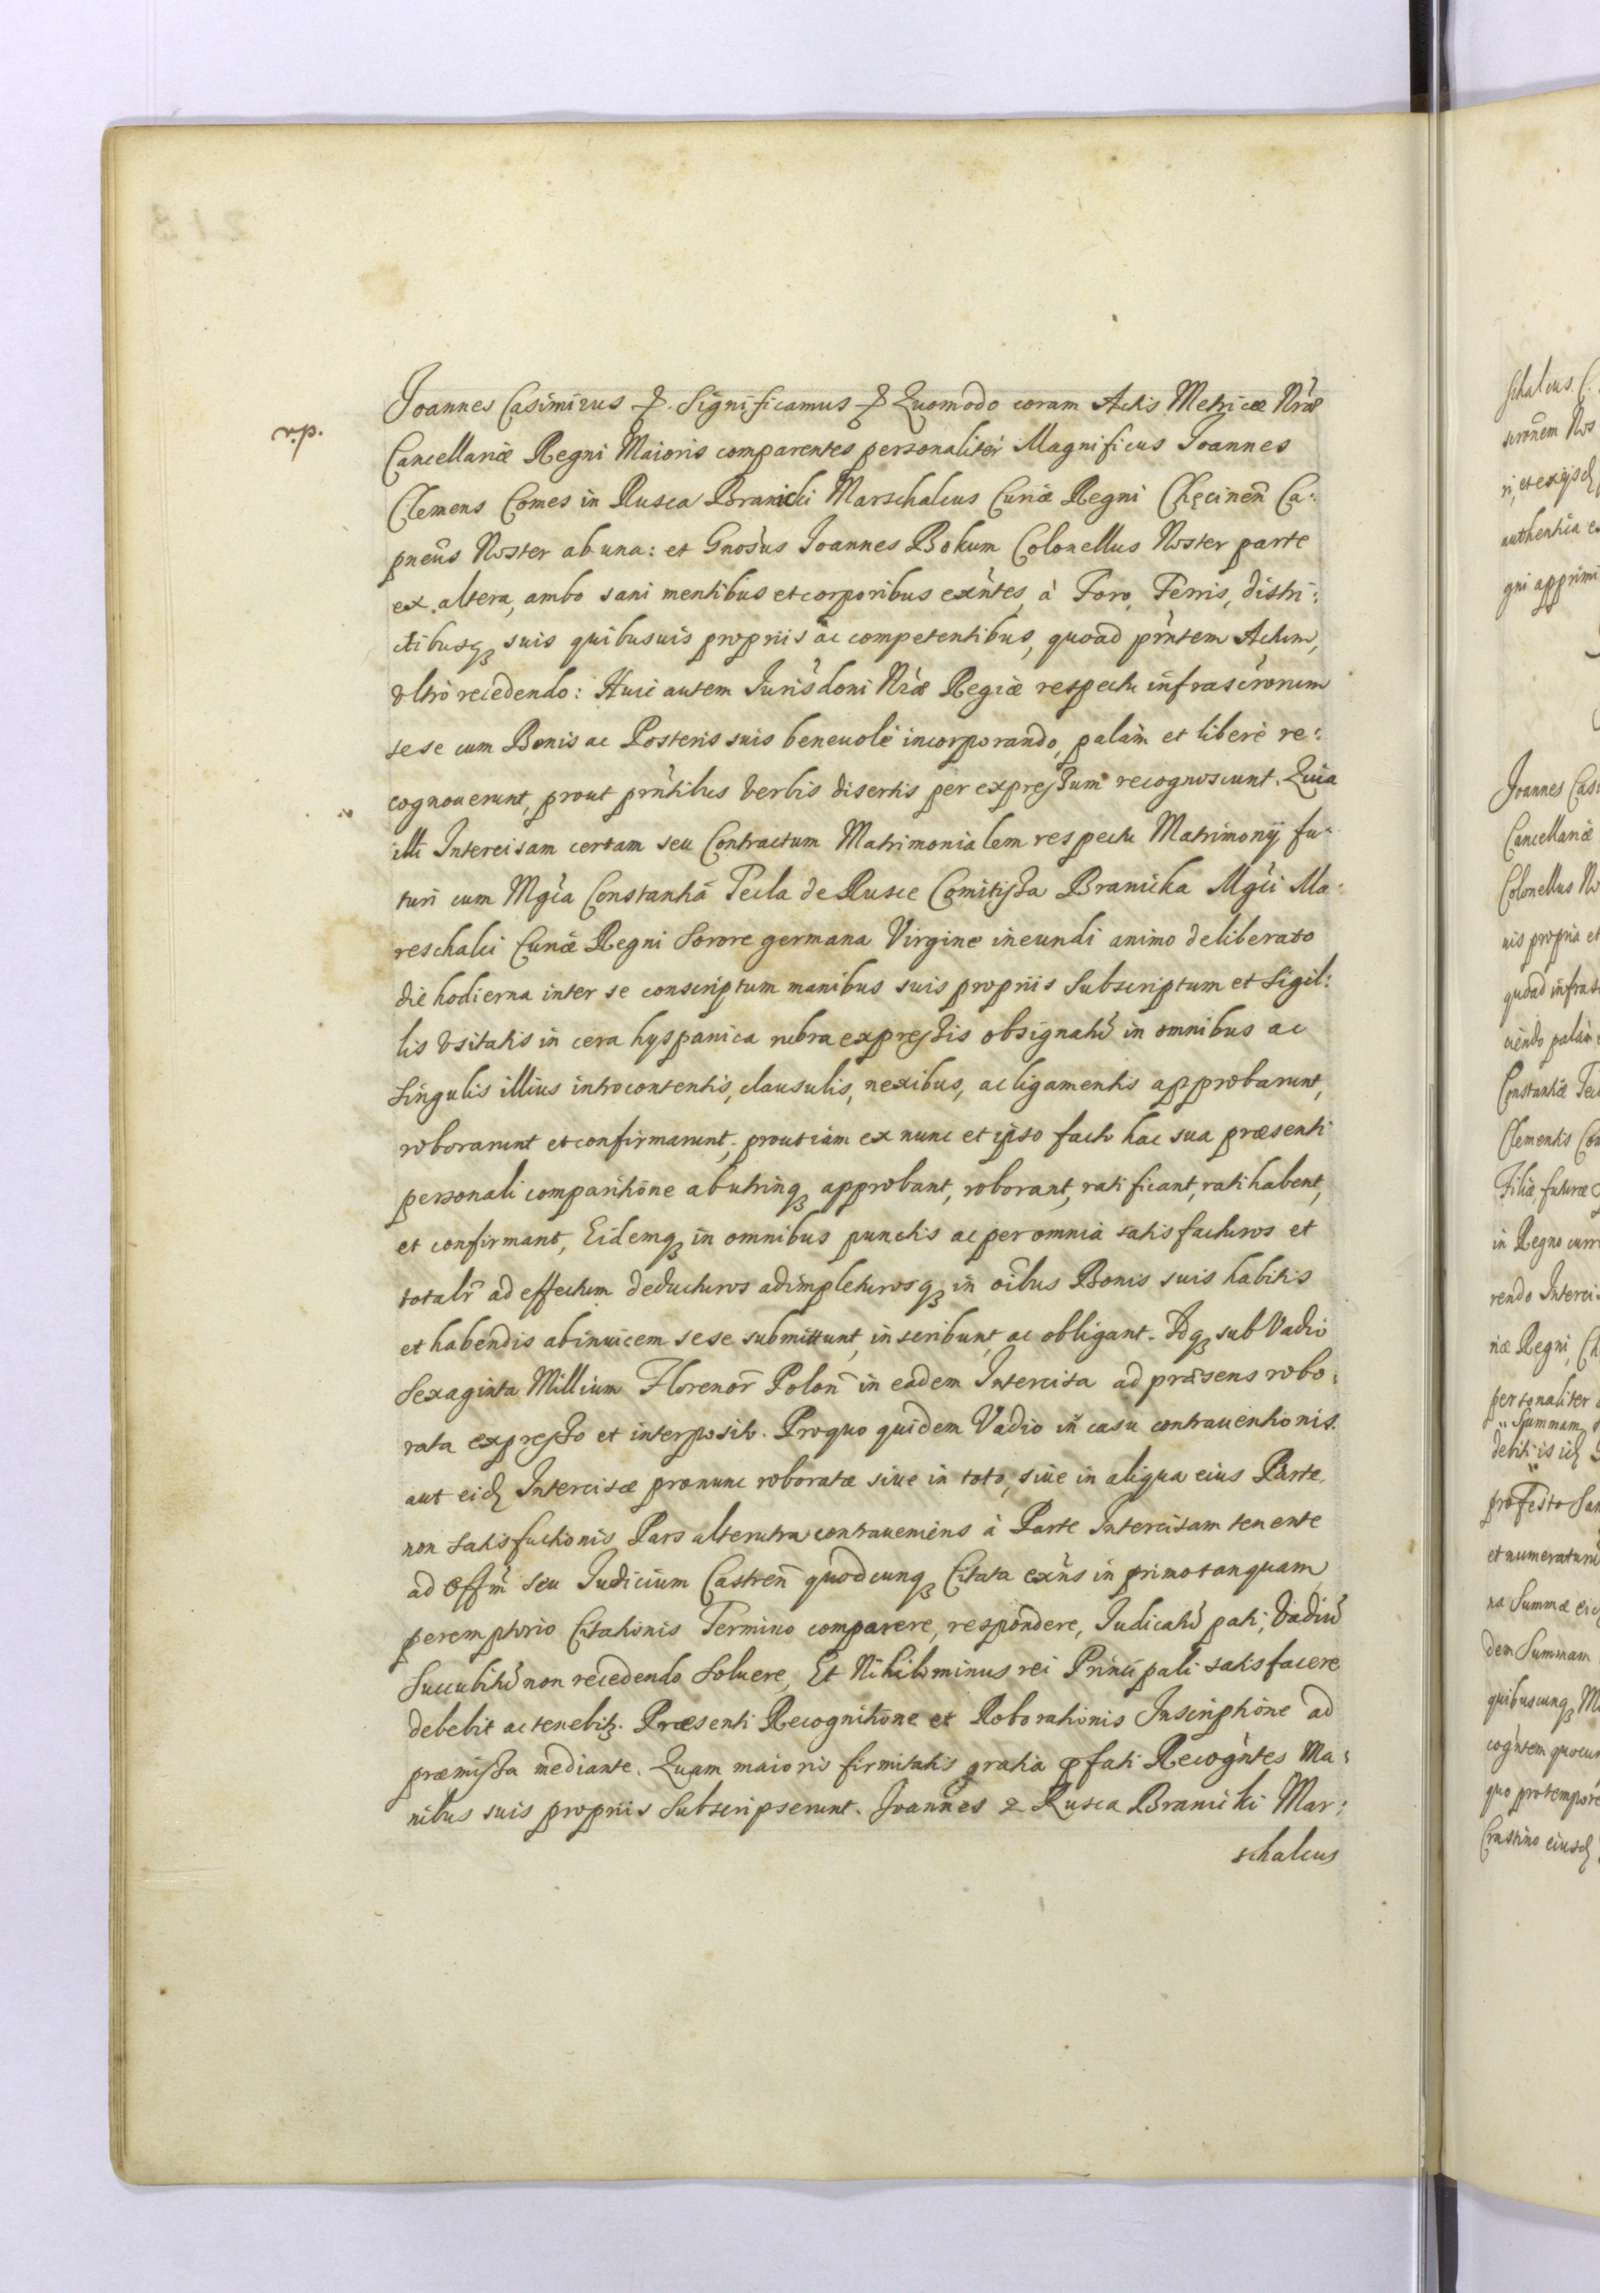 Joannes Casimirus &. Significamus & Quomodo coram Actis Metricæ Nræ
r.p.
Cancellariæ Regni Maioris comparentes personaliter Magnificus Joannes
Clemens Comes in Rusca Branicki Marschalcus Curiæ Regni Chęcineñ Ca:
pneũs Noster ab una: et Gnosus Joannes Bokum Colonellus Noster parte
ex altera, ambo sani mentibus et corporibus exñtes, à Foro, Terris, distri:
ctibusq₃ suis quibusuis propriis ac competentibus, quoad prñtem Actum,
vltrò recedendo: Huic autem Jurisdoni Nræ Regiæ respectu infrascrorum
sese cum Bonis ac Posteris suis beneuolè incorporando, palàm et liberè re:
cognouerunt, prout prñtibus verbis disertis per expressum recognoscunt. Quia
illi Intercisam certam seu Contractum Matrimonialem respectu Matrimonij fu:
turi cum Mgca Constantiã Tecla de Rusce Comitissa Branicka Mgci Ma:
reschalci Curiæ Regni Sorore germana Virgine ineundi animo deliberato
die hodierna inter se conscriptum manibus suis propriis Subscriptum et Sigil:
lis vsitatis in cera hyspanica rubra expressis obsignatũ in omnibus ac
Singulis illius introcontentis, clausulis, nexibus, ac ligamentis approbarunt,
roborarunt et confirmarunt, prout iam ex nunc et ipso facto hac sua præsenti
personali comparitione ab utrinq₃ approbant, roborant, ratificant, ratihabent,
et confirmant, Eidemq₃ in omnibus punctis ac per omnia satisfacturos et
totalr ad effectum deducturos adimpleturosq₃ in oĩbus Bonis suis habitis
et habendis abinuicem sese submittunt, inscribunt, ac obligant. Idq₃ sub Vadio
Sexaginta Millium Florenor Poloñ in eadem Intercisa ad præsens robo:
rata expresso et interposito. Pro quo quidem Vadio in casu contrauentionis
aut eid Intercisæ pronunc roboratæ siue in toto, siue in aliqua eius Parte
non satisfactionis Pars alterutra contraueniens à Parte Intercisam tenente
ad Offm̃ seu Judicium Castreñ quodcunq₃ Citata exñs in primo tanquam
peremptorio Citationis Termino comparere, respondere, Judicatũ pati, Vadiũ
Succubitũ non recedendo Soluere, Et Nihilominus rei Principali satisfacere
debebit ac tenebit₃. Præsenti Recognitione et Roborationis Inscriptione ad
præmissa mediante. Quam maioris firmitatis gratia pfati Recogñtes Ma:
nibus suis propriis Subscripserunt. Joannes a Rusca Branicki Mar:
schalcus
schalcus C.
authentica e
gni apprimi
Joannes Casi
Cancellariæ
Colonellus No
uis propria et
quoad infrasc
ciendo palàm
Constantiæ Tec
Clementis Com
Filiæ, futuræ
in Regno curre
rendo Intercis
riæ Regni, Ch
personaliter
Summam
profesto San
et numeraturũ
na Summæ eid
dem Summam
quibuscunq₃ M
cogñtem quocun
quo pro tempore
Crastino eiusd